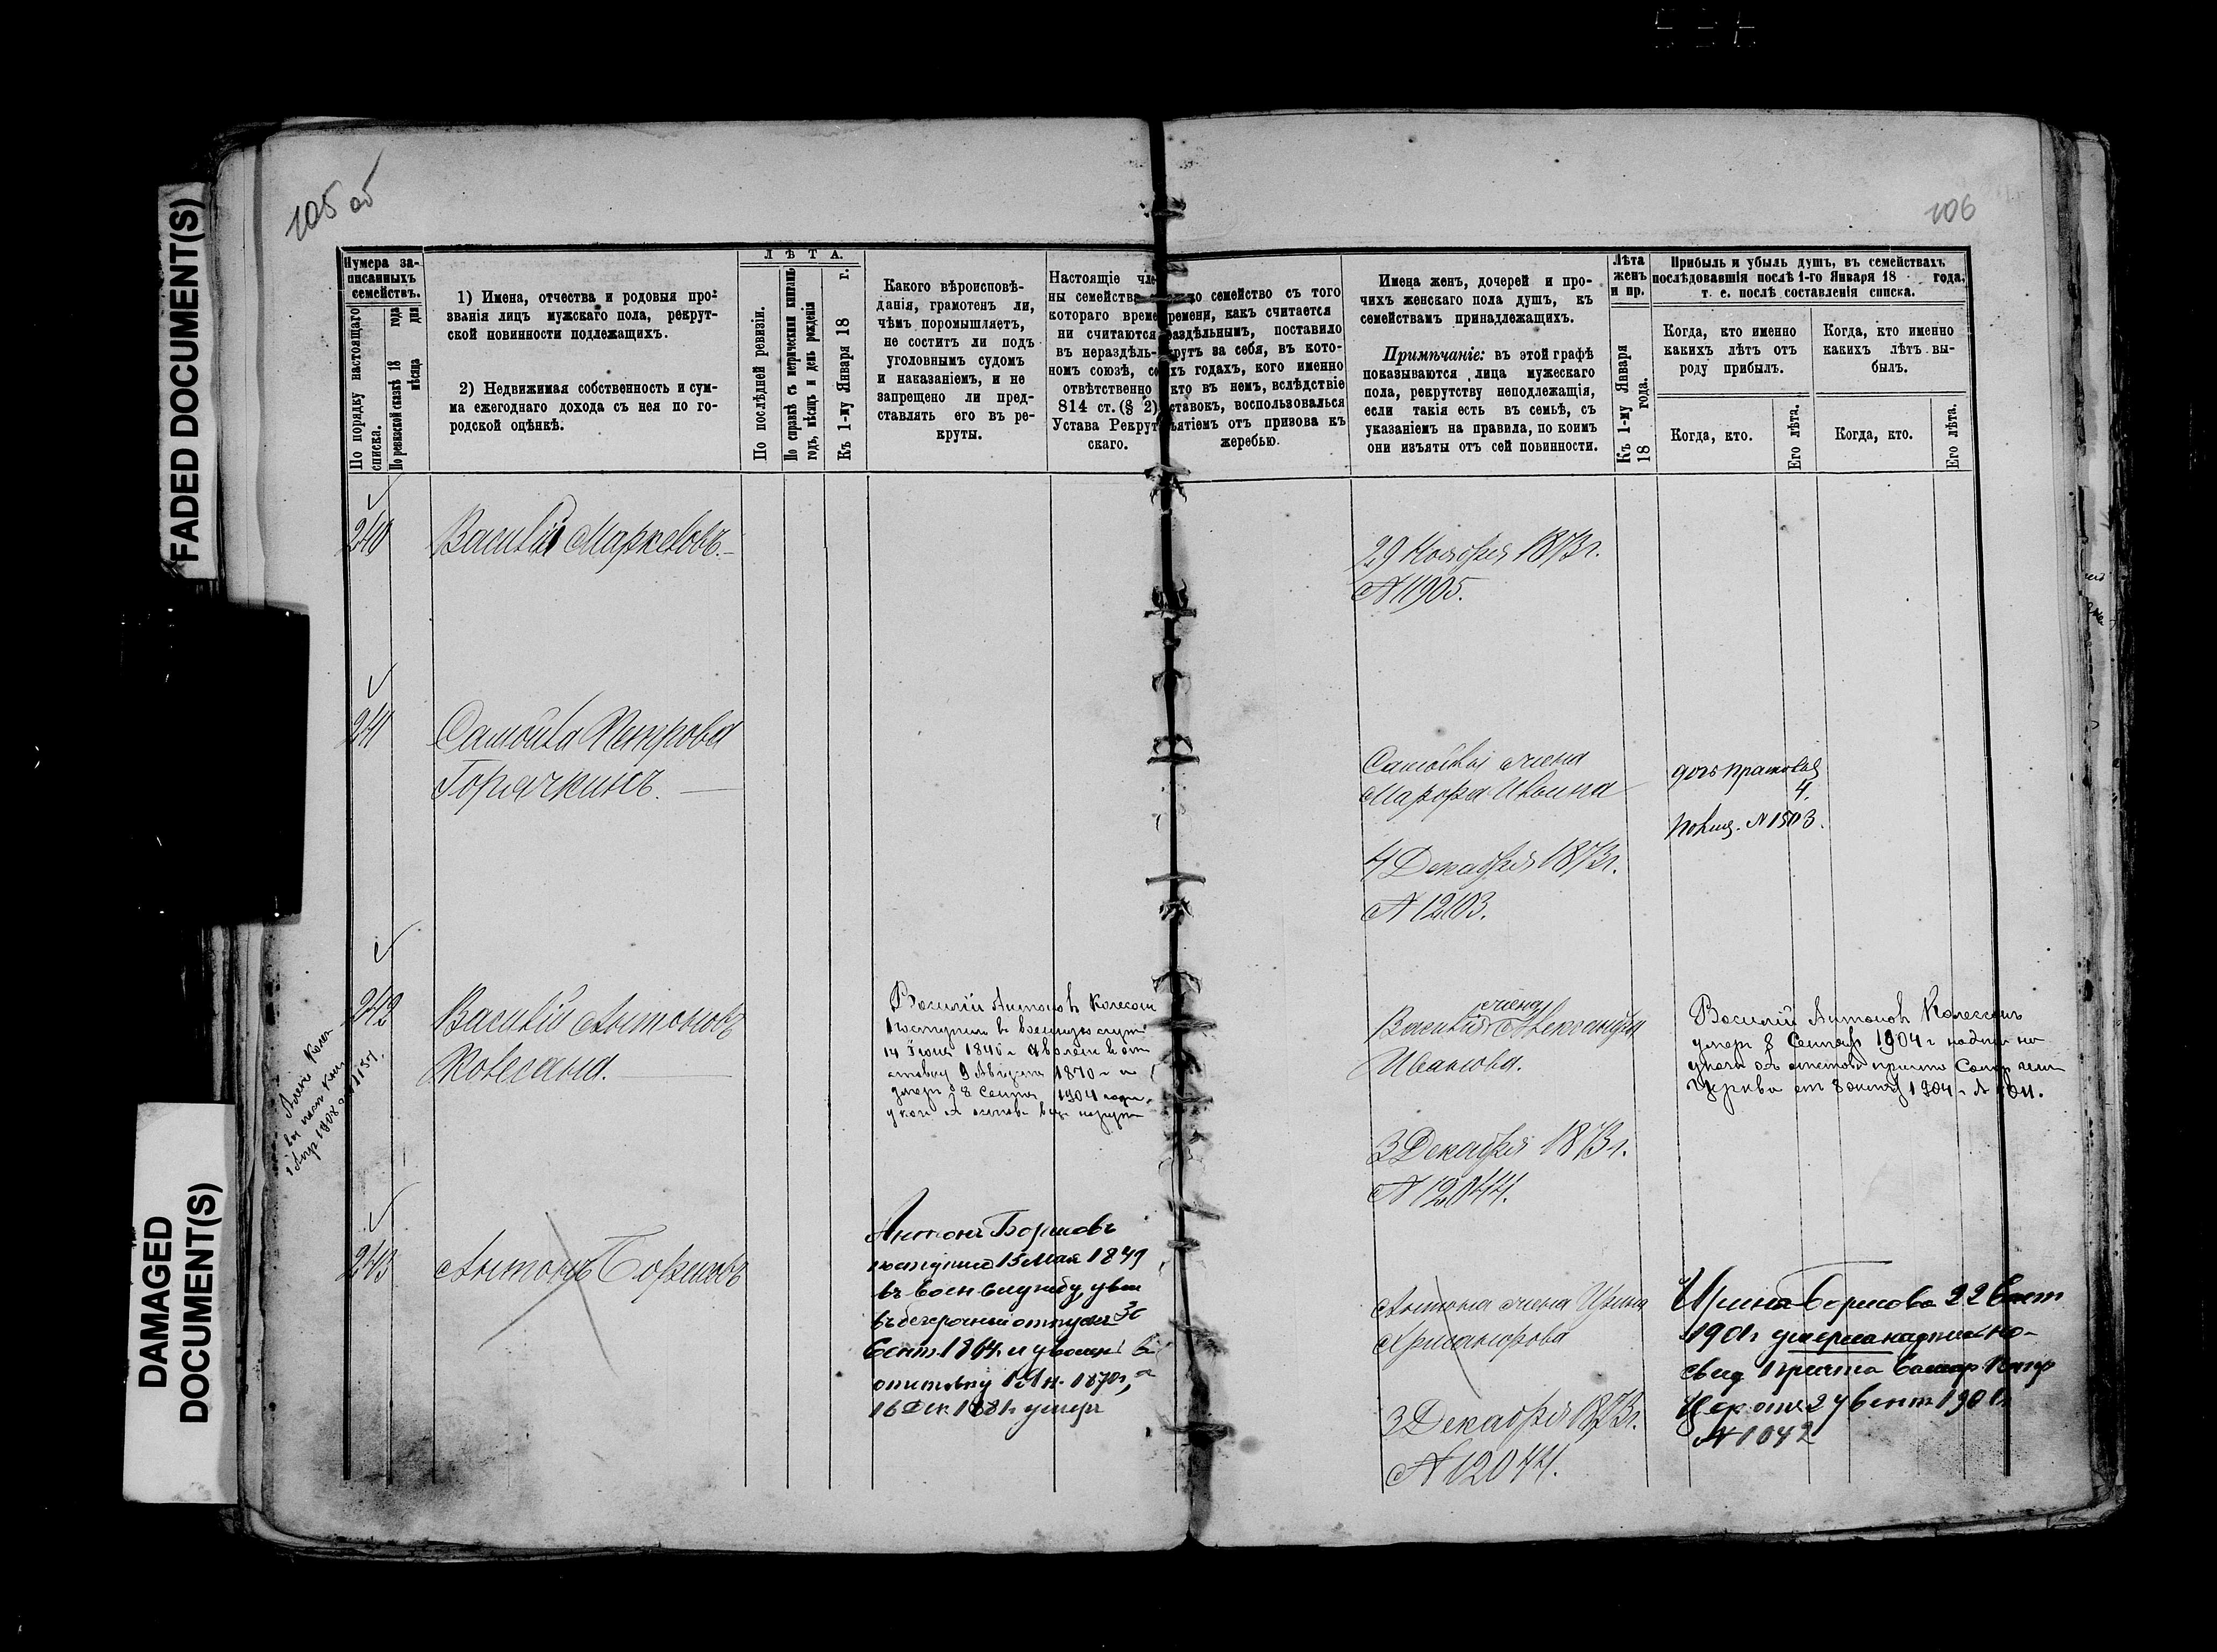 FADED DOCUMENT(S)
DAMAGED
DOCUMENT(S)
105 об
106
Нумера за-
писанныхъ
семействъ.
По порядку настоящаго
списка.
По ревизской сказкѣ 18 года
мѣсяца дня
1) Имена, отчества и родовыя про-
званія лицъ мужскаго пола, рекрут-
ской повинности подлежащихъ.
2) Недвижимая собственность и сум-
ма ежегоднаго дохода съ нея по го-
родской оцѣнкѣ.
ЛѢТА.
По послѣдней ревизіи.
По справкѣ съ метрическими книгами
годъ, мѣсяцъ и день рожденія
Къ 1-му Января 18 г.
Какого вѣроисповѣ-
данія, грамотенъ ли,
чѣмъ поромышляетъ,
не соститъ ли подъ
уголовнымъ судомъ
и наказаніемъ, и не
запрещено ли пред-
ставлять его въ ре-
круты.
Настоящіе чле
ны семейства
котораго време
ни считаются
въ нераздѣль-
номъ союзѣ, со
отвѣтственно
814 ст. (§ 2)
Устава Рекрут
скаго.
до семейство съ того
ремени, какъ считается
раздѣльнымъ, поставило
крутъ за себя, въ кото-
хъ годахъ, кого именно
кто въ немъ, вслѣдствіе
ставокъ, воспользовался
ъятіемъ отъ призова къ
жеребью.
Имена женъ, дочерей и про-
чихъ женскаго пола душъ, къ
семействамъ принадлежащихъ.
Примѣчаніе: въ этой графѣ
показываются лица мужескаго
пола, рекрутству неподлежащія,
если такія есть въ семьѣ, съ
указаніемъ на правила, по коимъ
они изъяты отъ сей повинности.
Лѣта
женъ
и пр.
Къ 1-му Января
18 года.
Прибыль и убыль душъ, въ семействахъ
послѣдовавшія послѣ 1-го Января 18 года,
т. е. послѣ составленія списка.
Когда, кто именно
какихъ лѣтъ отъ
роду прибылъ.
Когда, кто именно
какихъ лѣтъ вы-
былъ.
Когда, кто.
Его лѣта.
Когда, кто.
Его лѣта.
240
Василій Маркеловъ.
29 Ноября 1873 г.
№ 11905.
241
Самойла Петрова
Горячкинъ.
Самойлы жена
Марфа Ивановна
4 Декабря 1873 г.
№ 12103.
№ 1503.
242
Василій Антоновъ
Колесанъ.
Василій Антоновъ Колесан
поступил в военную служ
14 Іюня 1846 г. уволен в от
ставку 9 Августа 1870 г. и
умеръ 8 Сентя 1904 года
Василія жена Александра
Иванова.
3 Декабря 1873 г.
№ 12044.
Василій Антоновъ Колесанъ
умеръ 8 Сентяб 1904 г
церкви от 8 1904 г. №
243
Антонъ Борисовъ
Антонъ Борисовъ
поступилъ 15 Мая 1849
въ воен службу, увол
въ безсрочный отпускъ 30
Сент. 1864 г. и уволенъ въ
отставку 1870 г., а
16 Дек. 1881 г. умеръ
Антона жена Ирина
3 Декабря 1873 г.
№ 12044.
Ирина Борисова 22 Сент
1901 г умерла надпись но-
свид причта
Цер отъ 24 Сент 1901 г
№ 1042